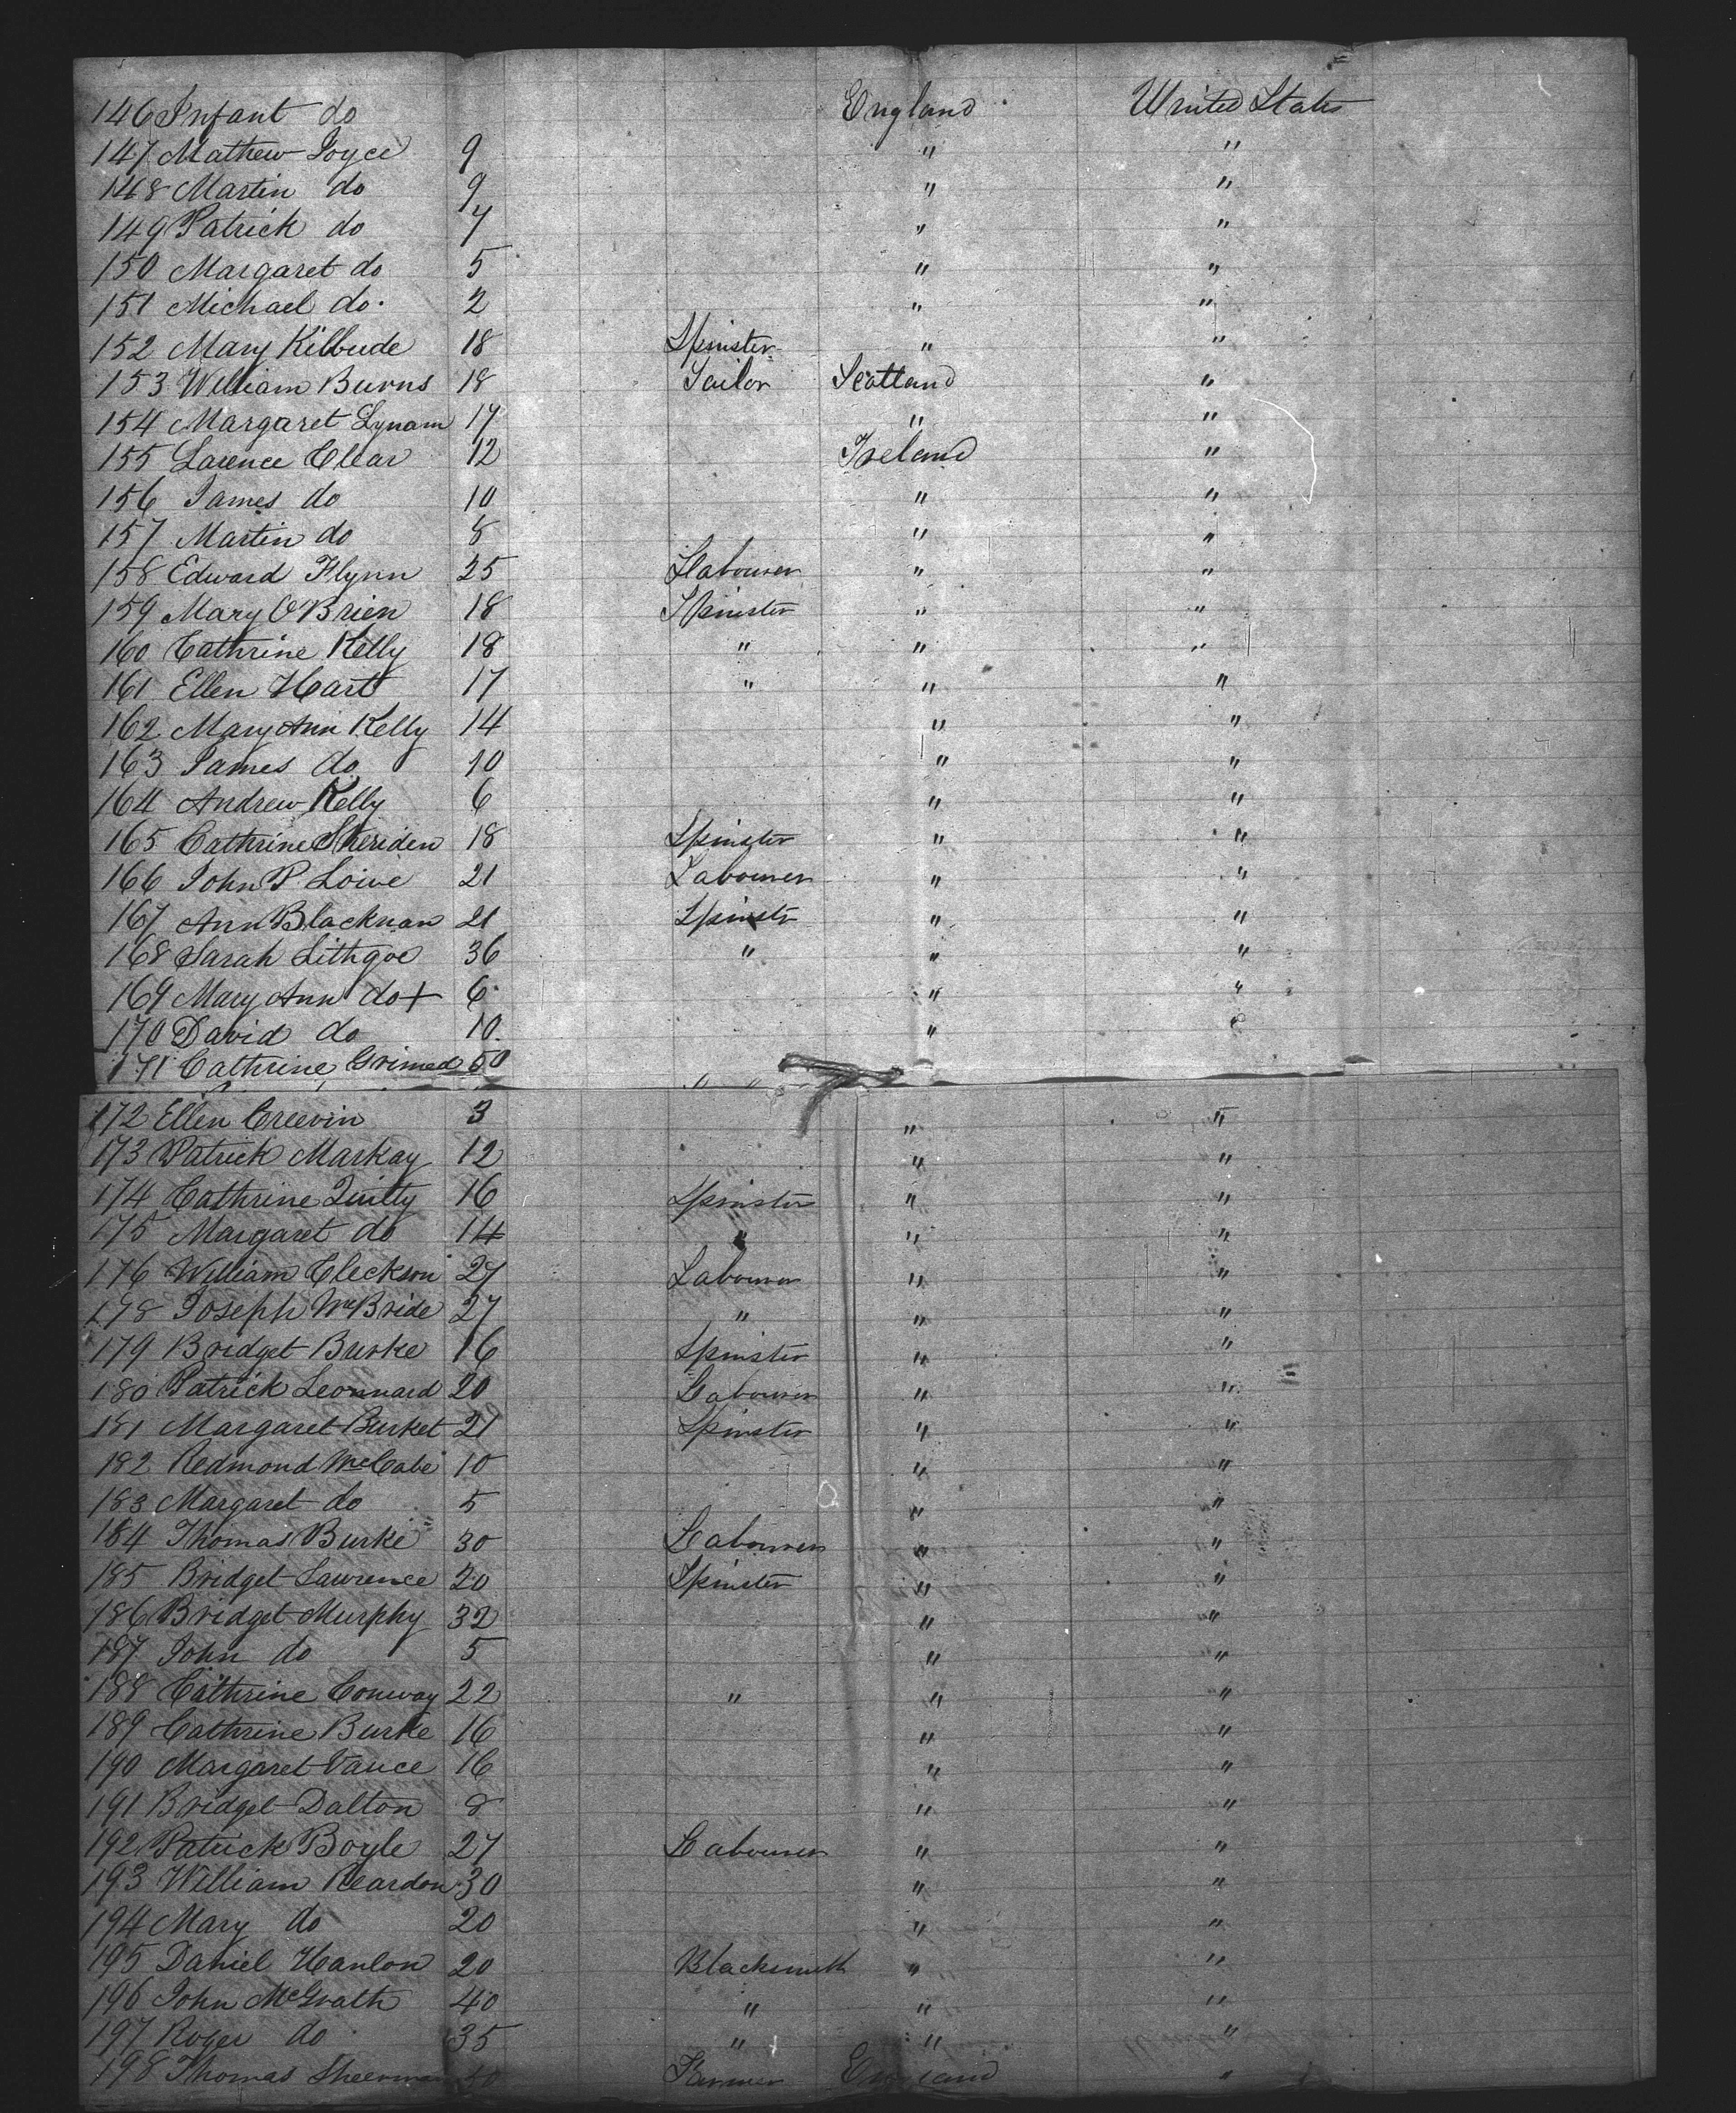 146 Infant do England United States
147 Mathew Joyce 9 " "
148 Martin do 9 " "
149 Patrick do 7 " "
150 Margaret do 5 " "
151 Michael do 2 " "
152 Mary Kilbude 18 Spinster " "
153 William Burns 18 Tailor Scotland "
154 Margaret Lynam 17 " "
155 Larence Clear 12 Ireland "
156 James do 10 " "
157 Martin do 8 " "
158 Edward Flynn 25 Labourer " "
159 Mary O'Brien 18 Spinster " "
160 Cathrine Kelly 18 " " "
161 Ellen Hart 17 " " "
162 Mary Ann Kelly 14 " "
163 James do 10 " "
164 Andrew Kelly 6 " "
165 Cathrine Sheriden 18 Spinster " "
166 John P Loive 21 Labourer " "
167 Ann Blacknan 21 Spinstr " "
168 Sarah Lithgoe 36 " " "
169 Mary Ann do + 6 " "
170 David do 10 " "
171 Cathrine Grimed 50 " "
172 Ellen Creevin 3 " "
173 Patrick Markay 12 " "
174 Cathrine Quilty 16 Spinster " "
175 Margaret do 14 " " "
176 William Cleckson 27 Labourer " "
178 Joseph McBride 27 " " "
179 Bridget Burke 16 Spinster " "
180 Patrick Leonnard 20 Labourer " "
181 Margaret Burket 21 Spinster " "
182 Redmond McCabe 10 " "
183 Margaret do 5 " "
184 Thomas Burke 30 Labourer " "
185 Bridget Lawrence 20 Spinster " "
186 Bridget Murphy 32 " "
187 John do 5 " "
188 Cathrine Conway 22 " " "
189 Cathrine Burke 16 " "
190 Margaret Vance 16 " "
191 Bridget Dalton 8 " "
192 Patrick Boyle 27 Labourer " "
193 William Reardon 30 " "
194 Mary do 20 " "
195 Daniel Hanlon 20 Blacksmith " "
196 John McGrath 40 " " "
197 Roger do 35 " " "
198 Thomas Farmer England "